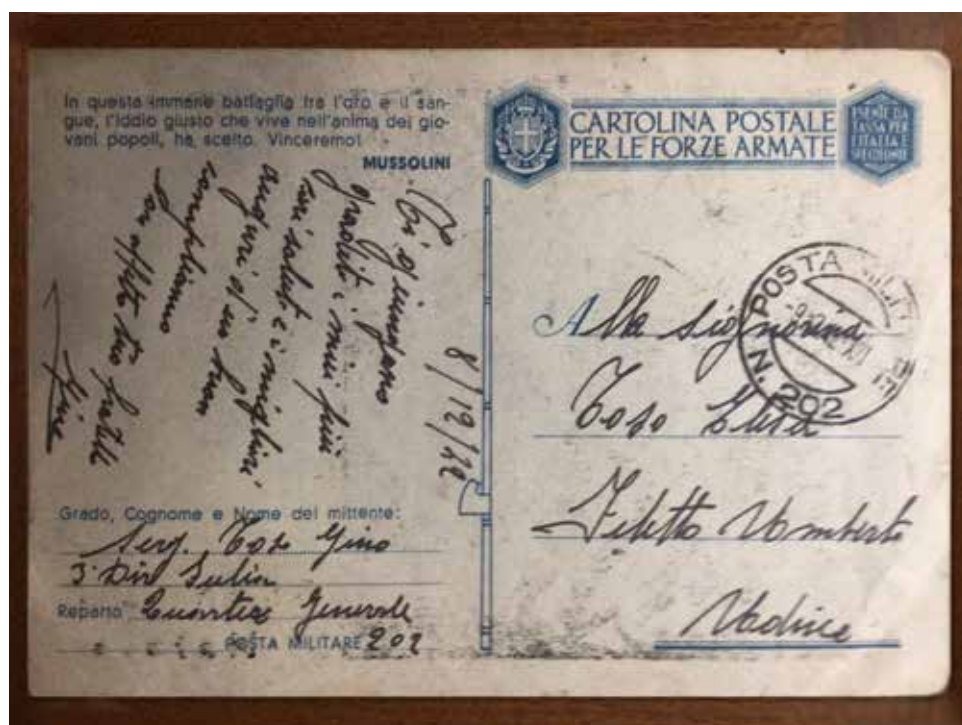 In questa immane battaglia fra l'oro e il san-
gue, l'Iddio giusto che vive nell'anima dei gio-
vani popoli, ha scelto. Vinceremo!
MUSSOLINI
8/12/42
Ti giungano
graditi i miei più
cari saluti e i migliori
auguri di un buon
compleanno
Con affetto tuo fratello
Gino
Grado, Cognome e Nome del mittente:
Serg. Toso Gino
3ª Div Julia
Reparto Quartier Generale
POSTA MILITARE 202
CARTOLINA POSTALE
PER LE FORZE ARMATE
ESENTE DA
TASSA PER
L'ITALIA E
POSTA
N. 202
Alla signorina
Toso
Feletto Umberto
Udine